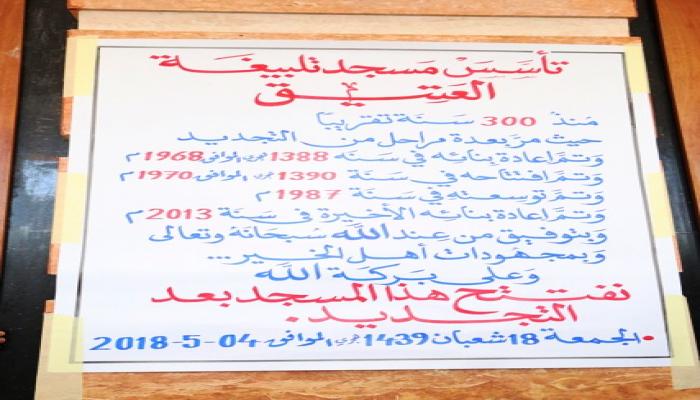 تأسس مسجد تلبيغة
العتيق
منذ 300 سنة تقريبا
حيث مر بعدة مراحل من التجديد
وتم إعادة بنائه في سنة 1388 هجري الموافق 1968 م
وتم افتتاحه في سنة 1390 هجري الموافق 1970 م
وتم توسعته في سنة 1987 م
وتم إعادة بنائه الأخيرة في سنة 2013 م
وبتوفيق من عند الله سبحانه وتعالى
وبمجهودات أهل الخير...
وعلى بركة الله
نفتتح هذا المسجد بعد
التجديد.
• الجمعة 18 شعبان 1439 هجري الموافق 04-5-2018